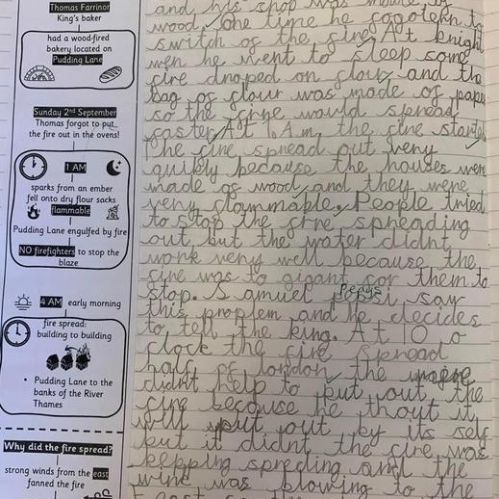 Thomas Farrinor
King's baker
had a wood-fired
bakery located on
Pudding Lane
Sunday 2nd September
Thomas forgot to put
the fire out in the ovens!
1 AM
sparks from an ember
fell onto dry flour sacks
flammable
Pudding Lane engulfed by fire
NO firefighters to stop the
blaze
4 AM early morning
fire spread:
building to building
• Pudding Lane to the
banks of the River
Thames
Why did the fire spread?
strong winds from the east
fanned the fire
and his shop was made of
wood, one time he to
switch of the fire. At knight
wen he went to sleep some
fire droped on flour, and the
bag of flour was made of pape
so the fire would spread
faster. At 1 Am the fire starte
The fire spread out very
quikly because the houses were
made of wood, and they were
very flammable. People tried
to stop the fire spreading
out but the water didnt
work very well because the
fire was to gigant for them to
stop. Samuel Pepys say
this problem and he decides
to tell the king. At 10 o
clock the fire spread
half of london the
didnt help to put out the
fire because he thout it
will put out by its self
but it didnt the fire was
kepping spreding and the
wind was blowing to the